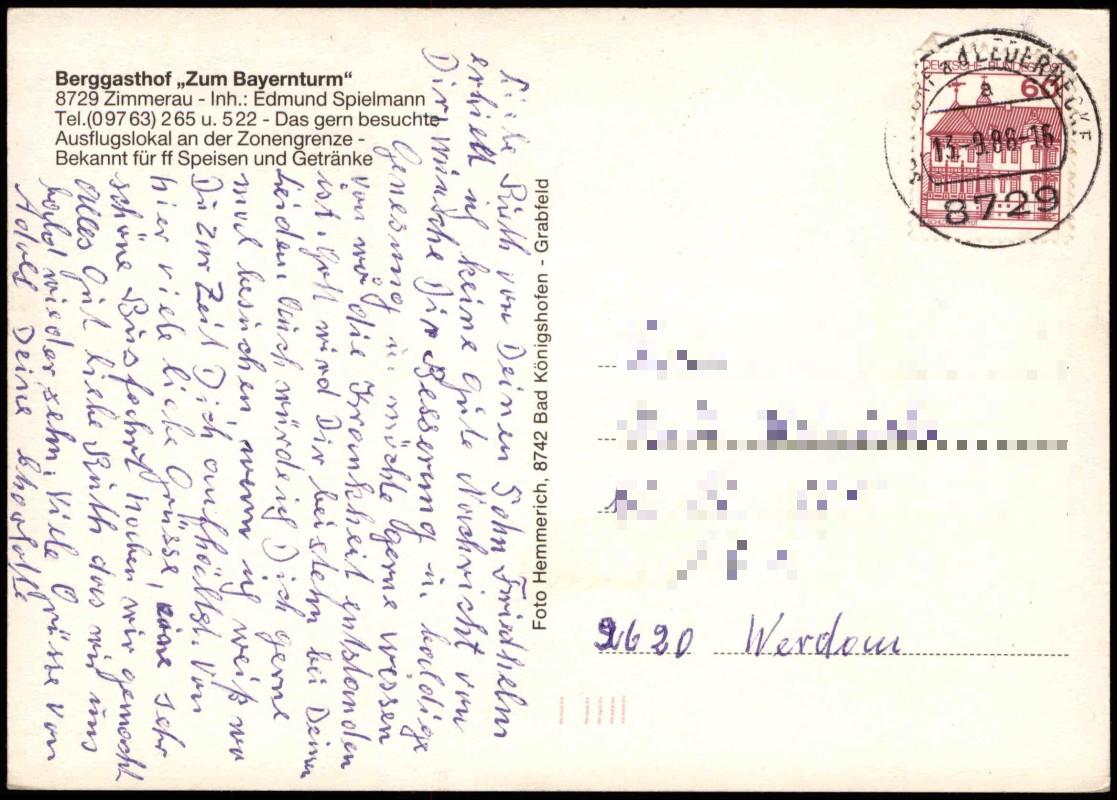 Berggasthof „Zum Bayernturm“
8729 Zimmerau - Inh.: Edmund Spielmann
Tel.(09763) 265 u. 522 - Das gern besuchte
Ausflugslokal an der Zonengrenze -
Bekannt für ff Speisen und Getränke
Liebe Ruth von Deinen Sohn Friedhelm
erhielt ich keine gute Nachricht von
Dir, wünsche Dir Besserung u. baldige
Genesung u. möchte gerne wissen
von wo die Krankheit entstanden
ist. Gott wird Dir beistehn bei Deinen
Leiden. Auch würde ich Dich gerne
mal besuchen wenn ich weiß wo
Du zur Zeit Dich aufhältst. Von
hier viele liebe Grüsse, eine sehr
schöne Busfahrt haben wir gemacht
alles Gut liebe Ruth das wir uns
bald wieder sehn. Viele Grüsse von
Adolf Deine
Foto Hemmerich, 8742 Bad Königshofen - Grabfeld
DEUTSCHE BUNDESPOST
60
a
13.-9.86-16
8729
9620 Werdau